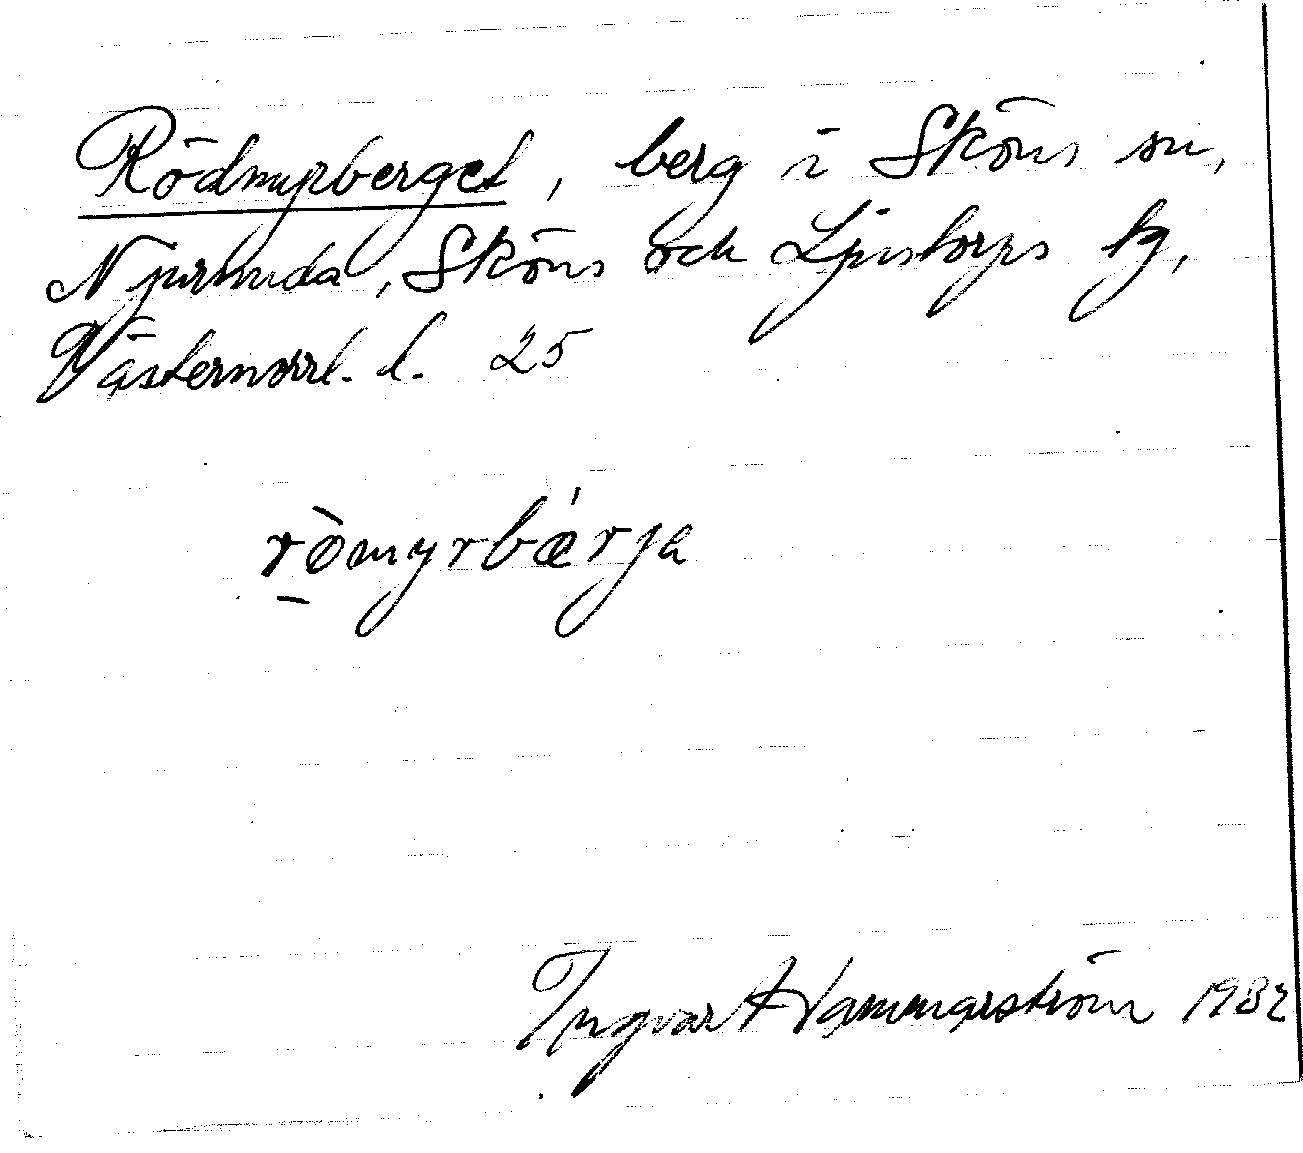 Rödmyrberget, berg i Sköns sn,
Njurunda, Sköns och Ljustorps tg,
Västernorrl. l. 25
ròmyrbǽrja
Ingvar Hammarström 1932